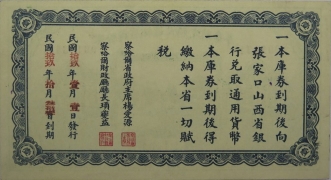 一本庫券到期後向
張家口山西省銀
行兌取通用貨幣
一本庫券到期後得
繳納本省一切賦
稅
察哈爾省政府主席楊愛源
察哈爾財政廳廳長
民國拾玖年壹月壹日發行
民國拾玖年拾月日到期